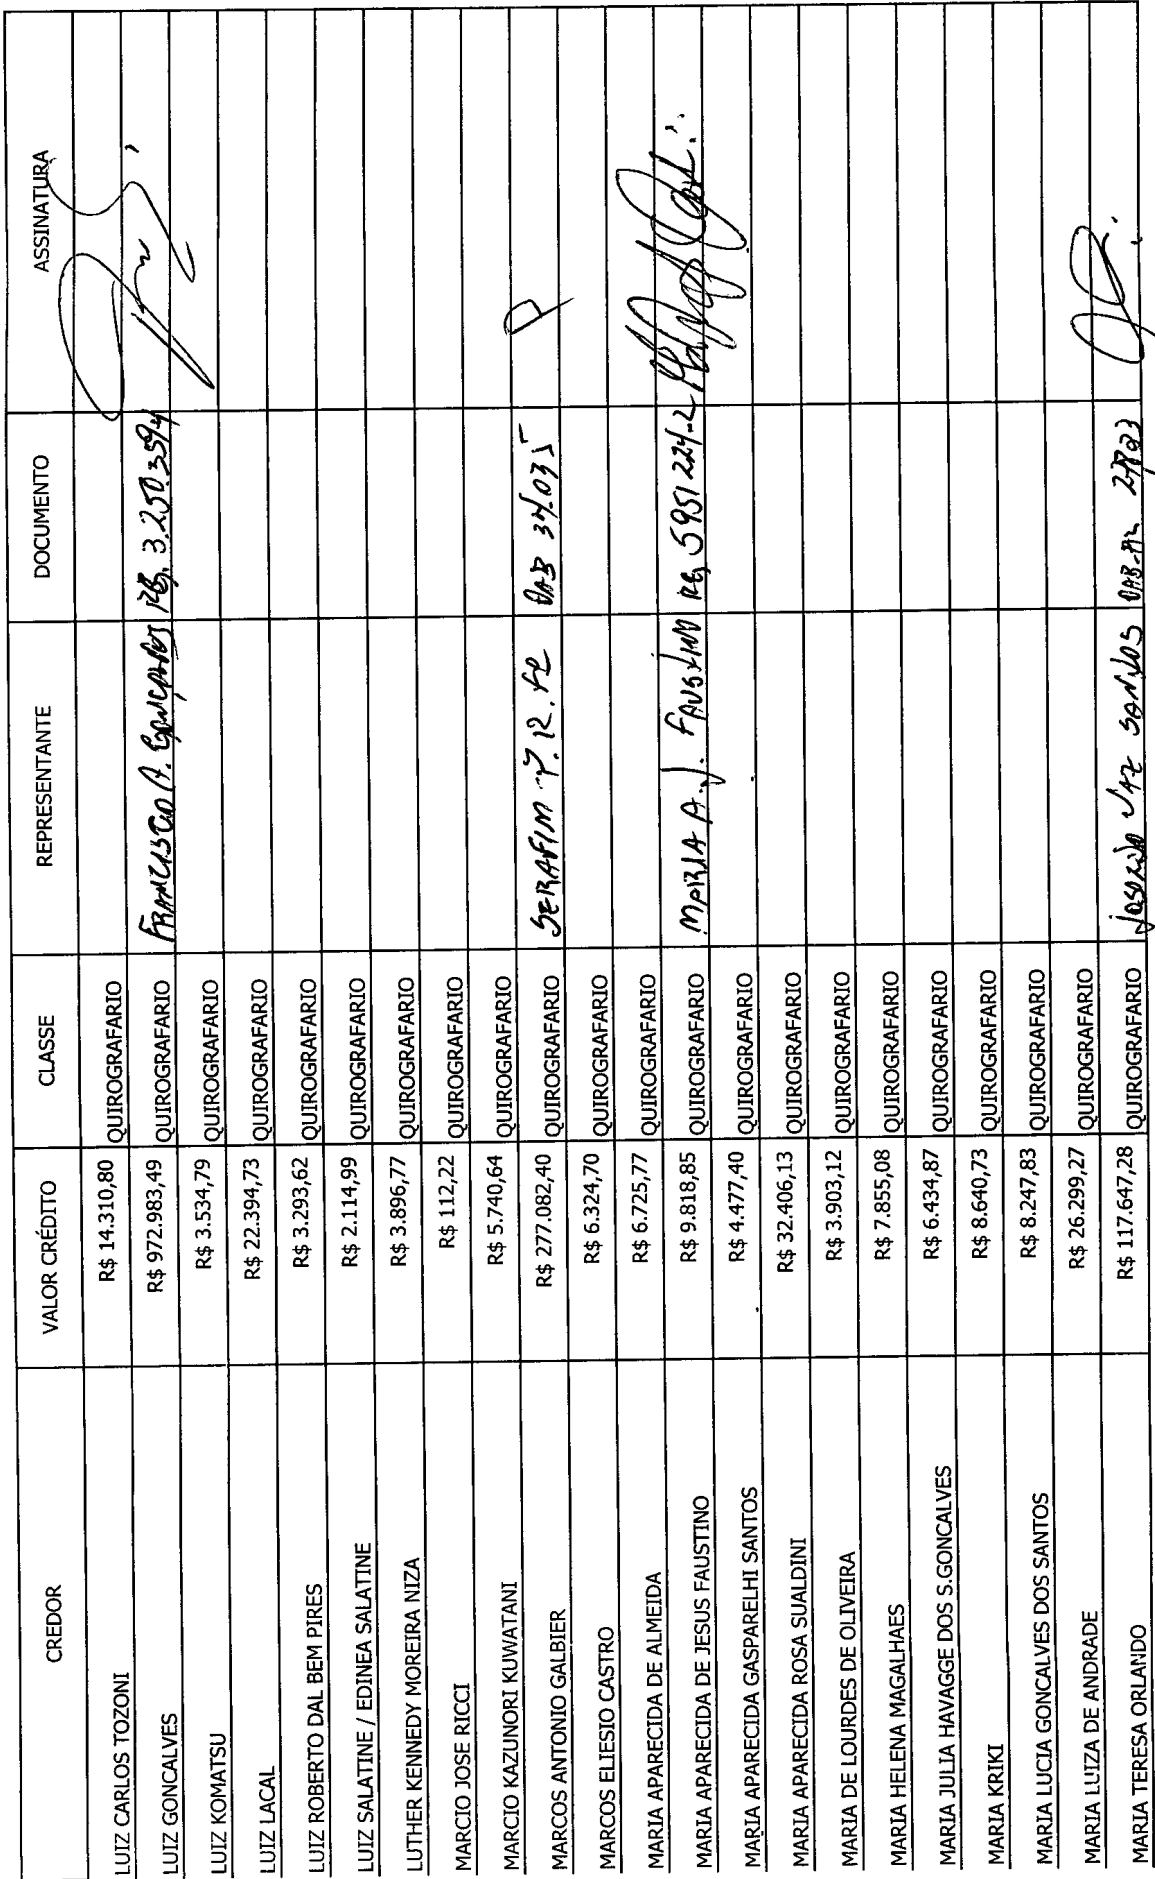 CREDOR VALOR CRÉDITO CLASSE REPRESENTANTE DOCUMENTO ASSINATURA
LUIZ CARLOS TOZONI R$ 14.310,80 QUIROGRAFARIO
LUIZ GONCALVES R$ 972.983,49 QUIROGRAFARIO FRANCISCO A. GONÇALVES RG. 3.250.3594
LUIZ KOMATSU R$ 3.534,79 QUIROGRAFARIO
LUIZ LACAL R$ 22.394,73 QUIROGRAFARIO
LUIZ ROBERTO DAL BEM PIRES R$ 3.293,62 QUIROGRAFARIO
LUIZ SALATINE / EDINEA SALATINE R$ 2.114,99 QUIROGRAFARIO
LUTHER KENNEDY MOREIRA NIZA R$ 3.896,77 QUIROGRAFARIO
MARCIO JOSE RICCI R$ 112,22 QUIROGRAFARIO
MARCIO KAZUNORI KUWATANI R$ 5.740,64 QUIROGRAFARIO
MARCOS ANTONIO GALBIER R$ 277.082,40 QUIROGRAFARIO SERAFIM OAB 34.035
MARCOS ELIESIO CASTRO R$ 6.324,70 QUIROGRAFARIO
MARIA APARECIDA DE ALMEIDA R$ 6.725,77 QUIROGRAFARIO
MARIA APARECIDA DE JESUS FAUSTINO R$ 9.818,85 QUIROGRAFARIO MARIA A. J. FAUSTINO RG 5951224-2
MARIA APARECIDA GASPARELHI SANTOS R$ 4.477,40 QUIROGRAFARIO
MARIA APARECIDA ROSA SUALDINI R$ 32.406,13 QUIROGRAFARIO
MARIA DE LOURDES DE OLIVEIRA R$ 3.903,12 QUIROGRAFARIO
MARIA HELENA MAGALHAES R$ 7.855,08 QUIROGRAFARIO
MARIA JULIA HAVAGGE DOS S.GONCALVES R$ 6.434,87 QUIROGRAFARIO
MARIA KRIKI R$ 8.640,73 QUIROGRAFARIO
MARIA LUCIA GONCALVES DOS SANTOS R$ 8.247,83 QUIROGRAFARIO
MARIA LUIZA DE ANDRADE R$ 26.299,27 QUIROGRAFARIO
MARIA TERESA ORLANDO R$ 117.647,28 QUIROGRAFARIO VAZ SANTOS